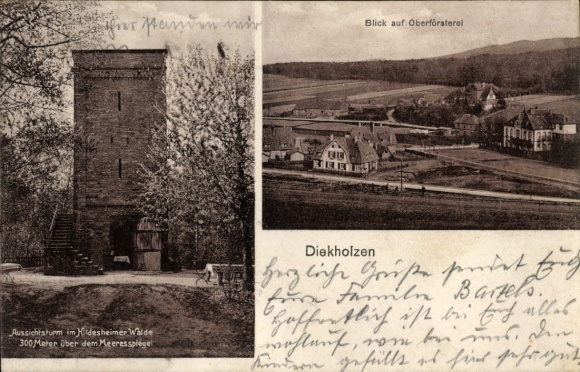 Hier standen wir
Blick auf Oberförsterei
Aussichtsturm im Hildesheimer Walde
300 Meter über dem Meeresspiegel
Diekholzen
Herzliche Grüße sendet Euch
Eure Familie Bartels.
Hoffentlich ist bei Euch alles
wohlauf, wie bei uns. Den
Kindern gefällt es hier sehr gut